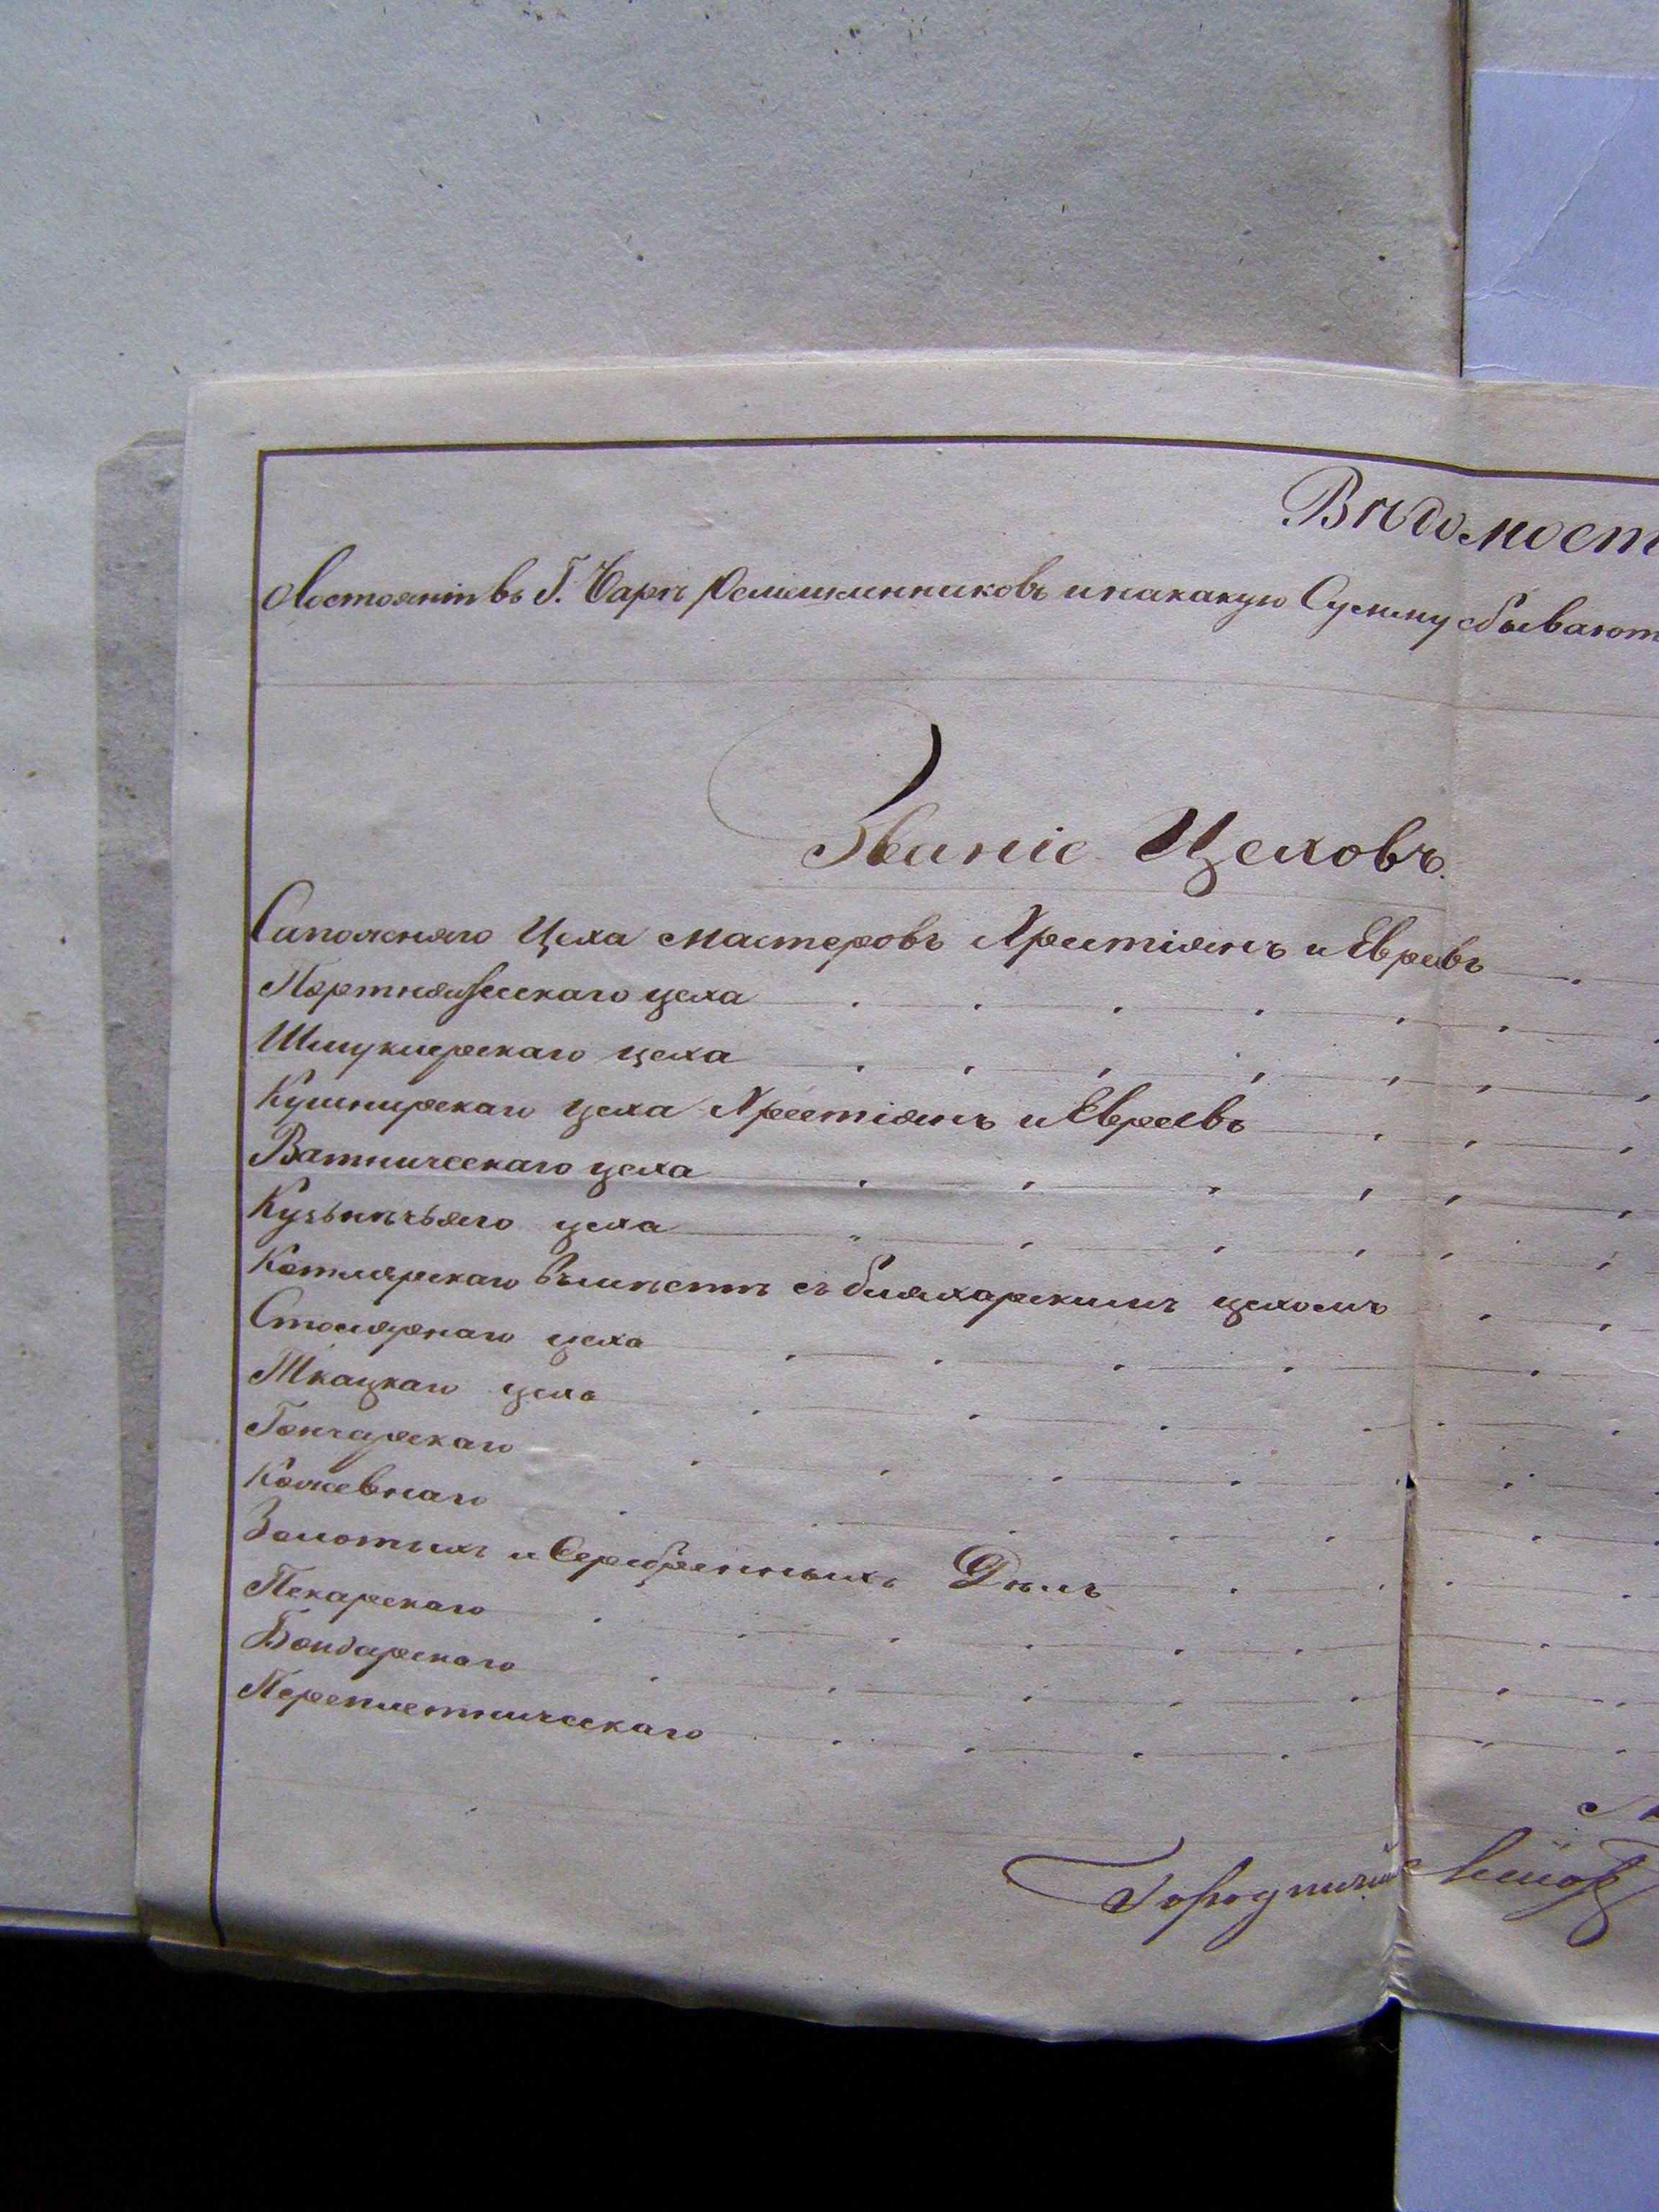 Вѣдомост
О состояніи въ Г. Барѣ ремешлинниковъ и накакую Сумму сбывают
Званіе Цеховъ.
Сапожняго Цеха мастеровъ Христіянъ и Евреевъ
Портняжескаго цеха
Шмуклерскаго цеха
Кушнирскаго цеха Христіянъ и Евреевъ
Ватническаго цеха
Кузьнѣчьяго цеха
Котлярскаго вмѣстѣ съ бляхарскимъ цехомъ
Столярнаго цеха
Ткацкаго цеха
Гончарскаго
Кожевнаго
Золотыхъ и Серебренныхъ Дѣлъ
Пекарскаго
Бондарскаго
Переплетническаго
Городничій